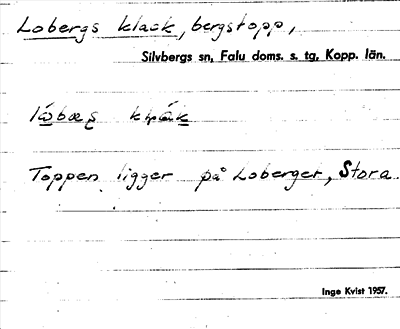 Lobergs klack, bergstopp,
Silvbergs sn, Falu doms. s. tg, Kopp. län.
Toppen ligger på Loberget, Stora.
Inge Kvist 1957.